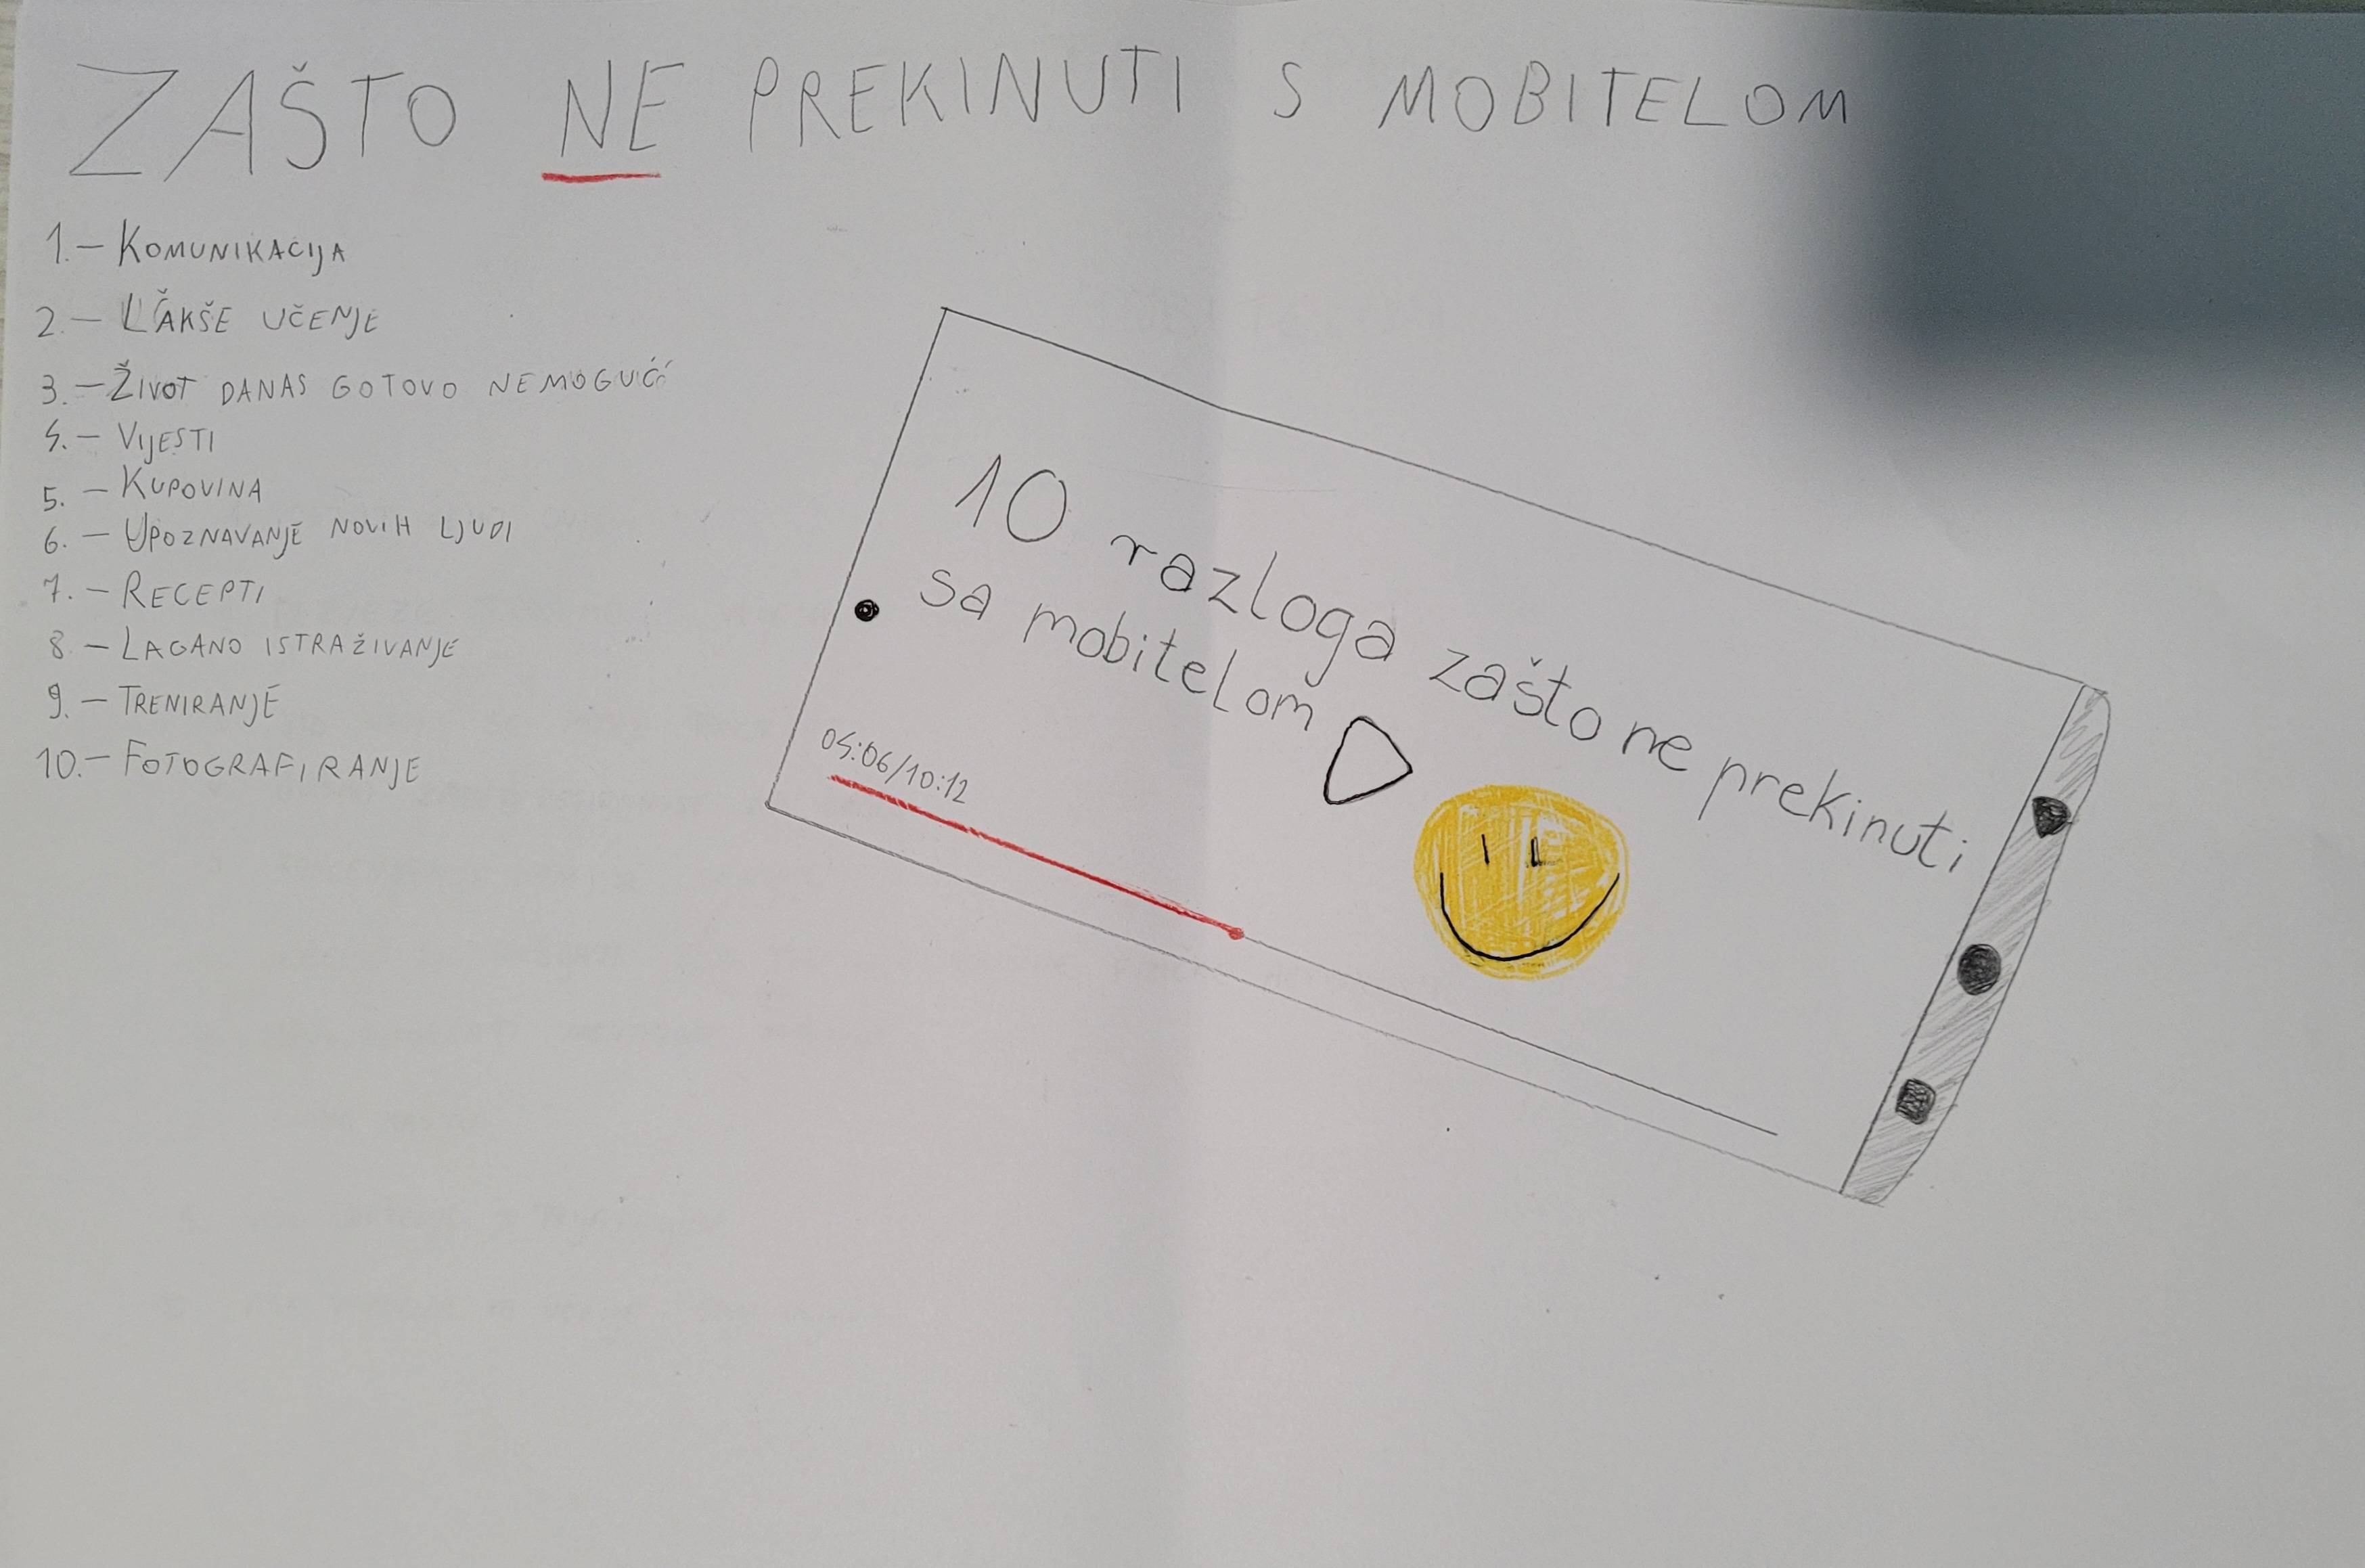 ZAŠTO NE PREKINUTI S MOBITELOM
1.- KOMUNIKACIJA
2.- LAKŠE UČENJE
3.- ŽIVOT DANAS GOTOVO NEMOGUĆ
4.- VIJESTI
5.- KUPOVINA
6.- UPOZNAVANJE NOVIH LJUDI
7.- RECEPTI
8.- LAGANO ISTRAŽIVANJE
9.- TRENIRANJE
10.- FOTOGRAFIRANJE
10 razloga zašto ne prekinuti
sa mobitelom
05:06/10:12